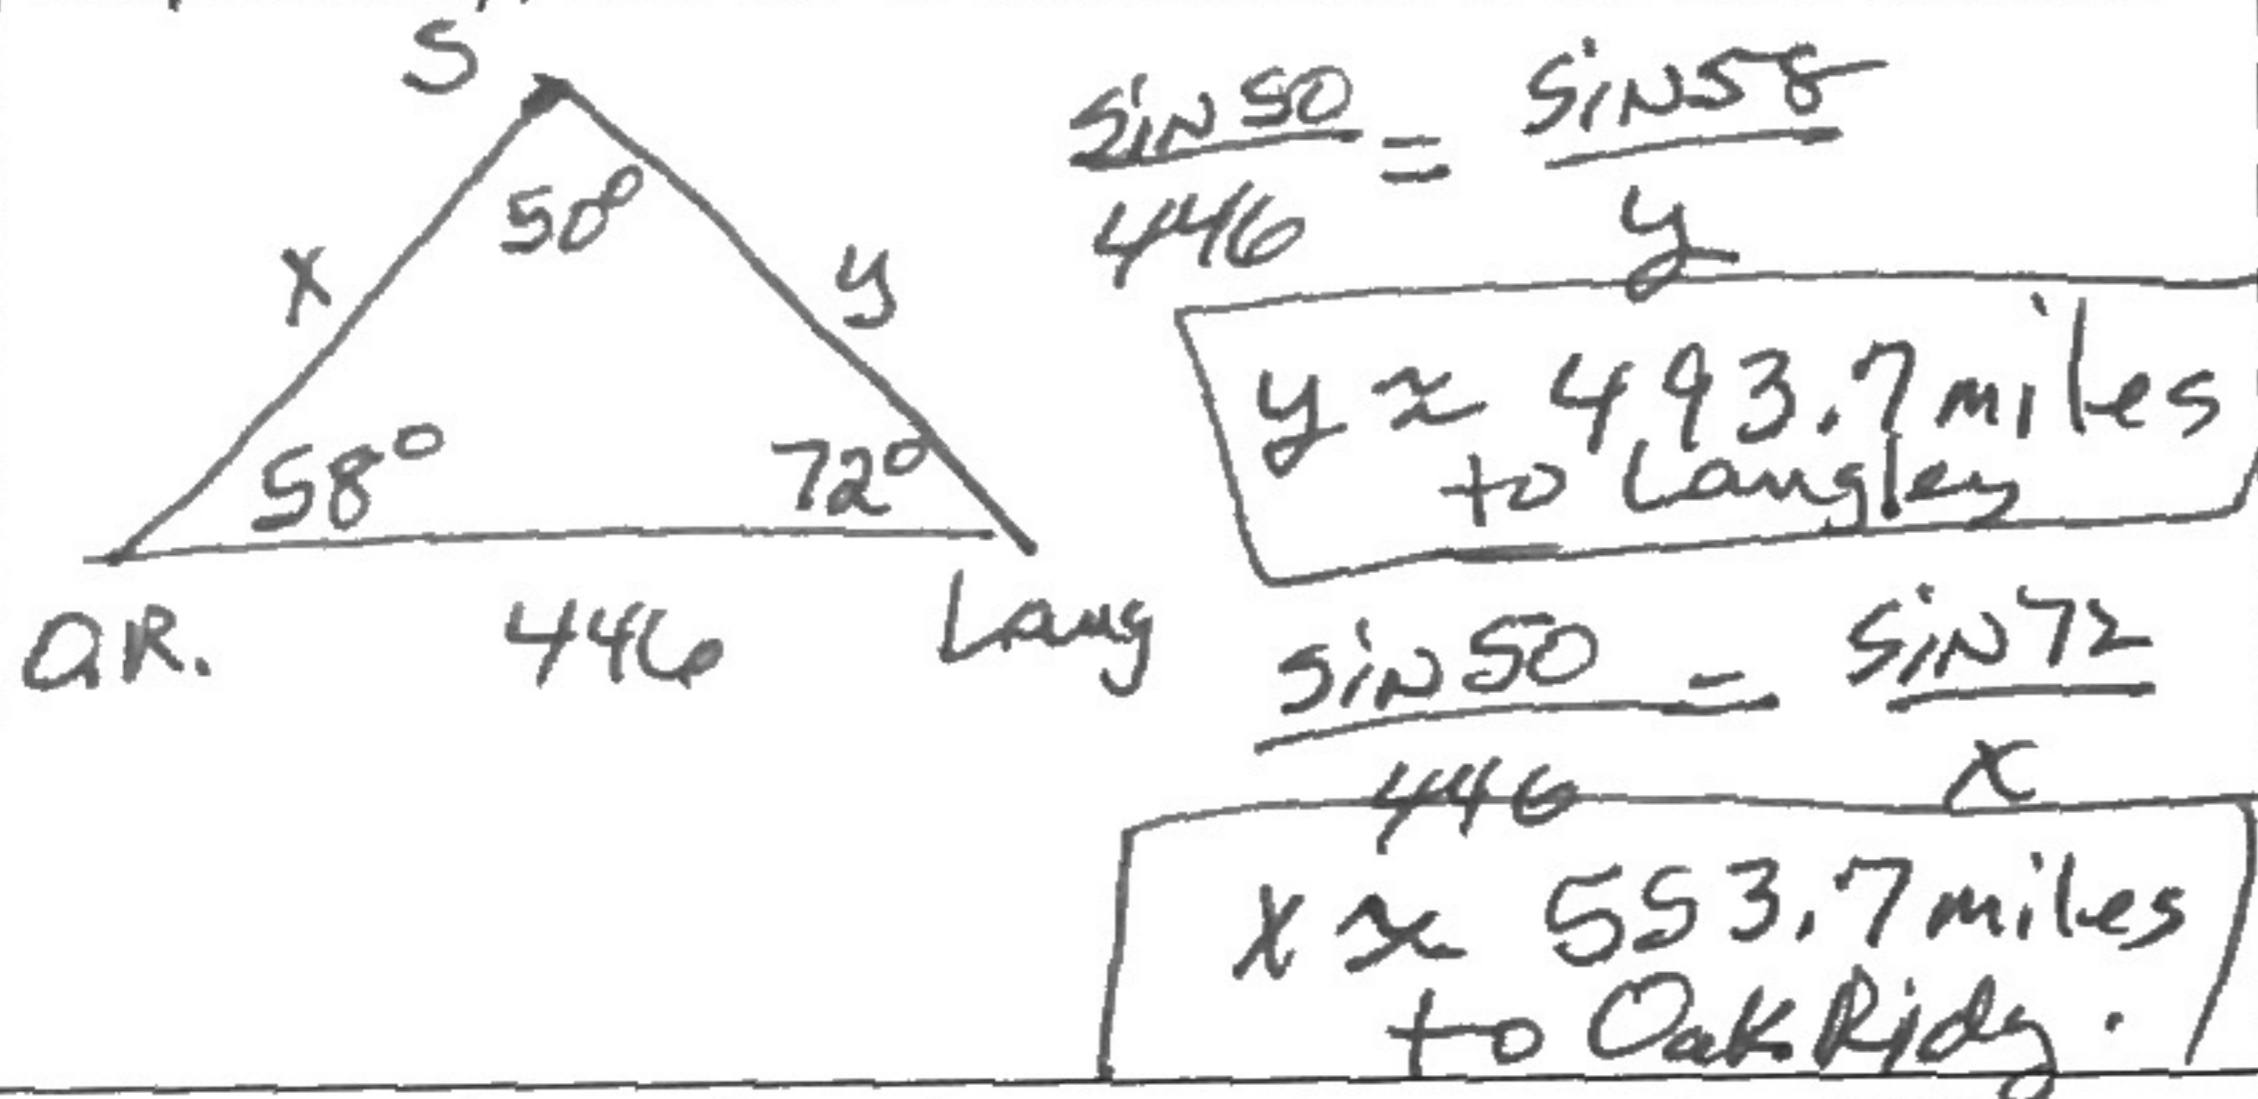 S
50°
x
y
58°
72°
O.R.
446
Lang
sin 50 / 446 = sin 58 / y
y ≈ 493.7 miles
to Langley
sin 50 / 446 = sin 72 / x
x ≈ 553.7 miles
to Oak Ridg.